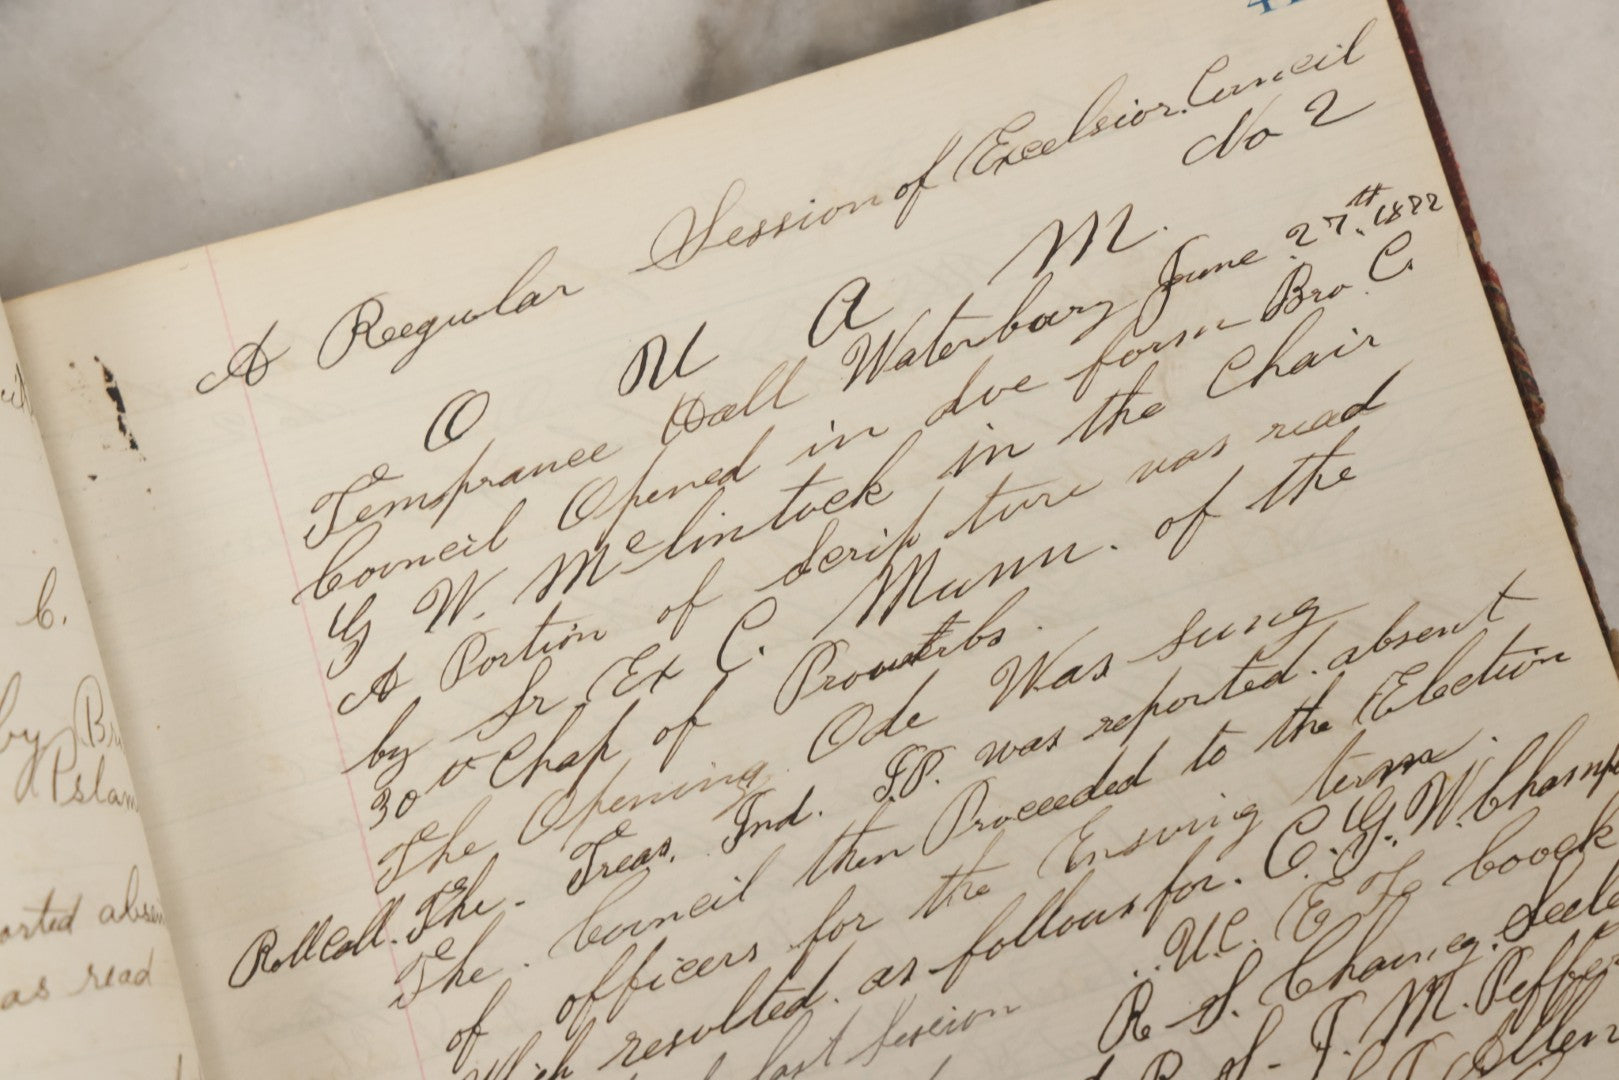 A Reegular Session of Excelsior. Council
No 2
O U A M.
Temprance Hall Waterbury June 27th. 1882
Council Opened in due form Bro C.
G W. McClintock in the Chair
A Portion of Scripture was read
by Sr Ex C. Munn. of the
30th Chap of Proverbs.
The Opening Ode Was sung
Roll Call. The. Treas. Ind. I.P. was reported. absent
The. Council then Proceeded to the Election
of officers for the Ensuing term.
Which resulted. as follows for. C. G. W. Champ
last Session U.C. E
R S. Chaincy.
R. S- J. M. Peffer
Allen
C.
by Br
orted absen
as read